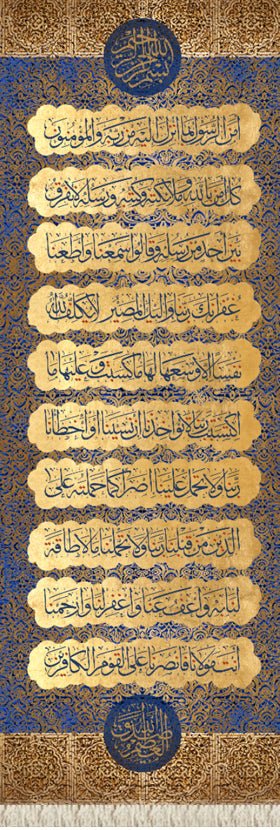 بسم الله الرحمن الرحيم
آمن الرسول بما أنزل إليه من ربه والمؤمنون
كل آمن بالله وملائكته وكتبه ورسله لا نفرق
بين أحد من رسله وقالوا سمعنا وأطعنا
غفرانك ربنا وإليك المصير لا يكلف الله
نفسا إلا وسعها لها ما كسبت وعليها ما
اكتسبت ربنا لا تؤاخذنا إن نسينا أو أخطأنا
ربنا ولا تحمل علينا إصرا كما حملته على
الذين من قبلنا ربنا ولا تحملنا ما لا طاقة
لنا به واعف عنا واغفر لنا وارحمنا
أنت مولانا فانصرنا على القوم الكافرين
صدق الله العظيم